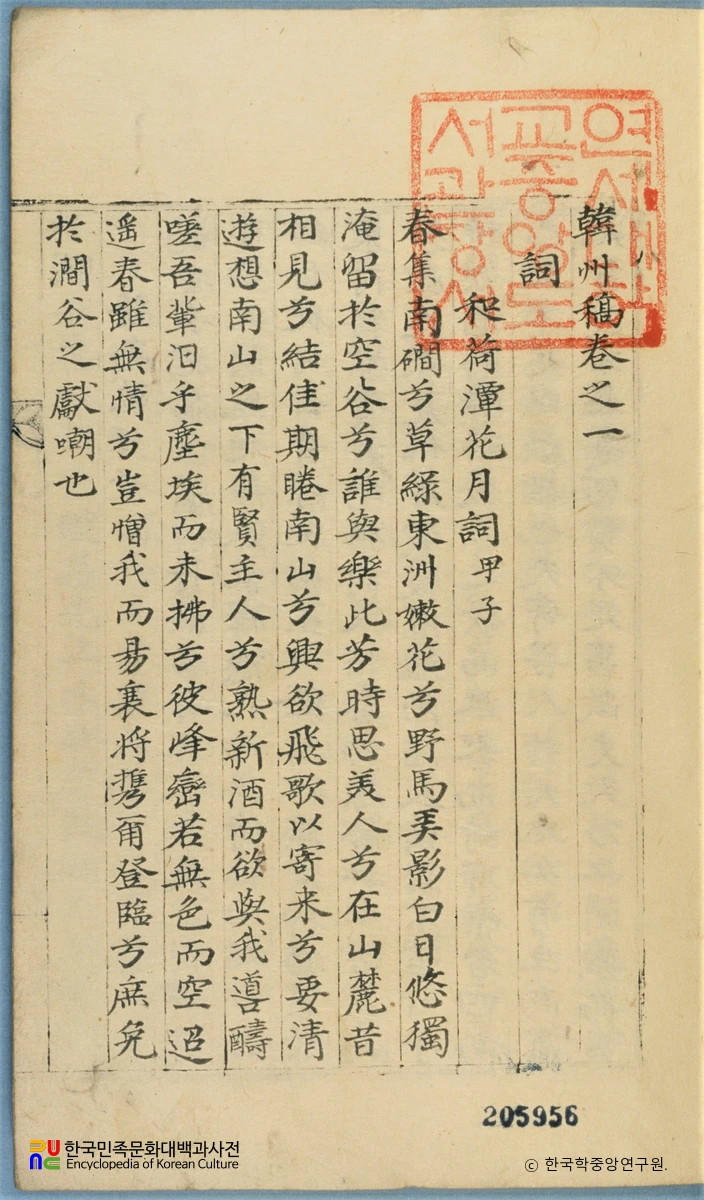 연세대학
교중앙도
서관장서
韓州稿卷之一
詞
和荷潭花月詞 甲子
春集南磵兮草綠東洲嫩花兮野馬弄影白日悠獨
淹留於空谷兮誰與樂此芳時思美人兮在山麓昔
相見兮結佳期睠南山兮興欲飛歌以寄来兮要清
遊想南山之下有賢主人兮熟新酒而欲與我噵醻
嗟吾輩汨乎塵埃而未拂兮彼峰巒若無色而空迢
遥春雖無情兮豈憎我而易衰将携爾登臨兮庶免
於澗谷之獻嘲也
205956
한국민족문화대백과사전
Encyclopedia of Korean Culture
© 한국학중앙연구원.